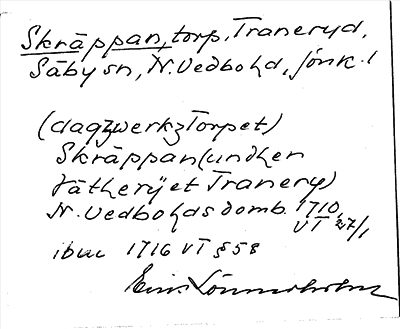 Skräppan, torp, Traneryd,
Säby sn, N. Vedbo hd, Jönk. l
(dagzwerkz Torpet)
Skräppan (undher
sätherijet Tranery)
N. Vedbo hds domb. 1710,
VT 27/1
ibm 1716 VT § 58